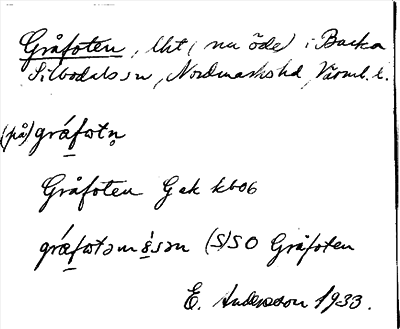 Gråfoten, lht (nu öde) i Backa
Silbodals sn, Nordmarks hd, Värml. l.
(på) gráfωtn̥
Gråfoten Gek kb06
grǽfωtəm è̱sən (S)SO Gråfoten
E. Andersson 1933.